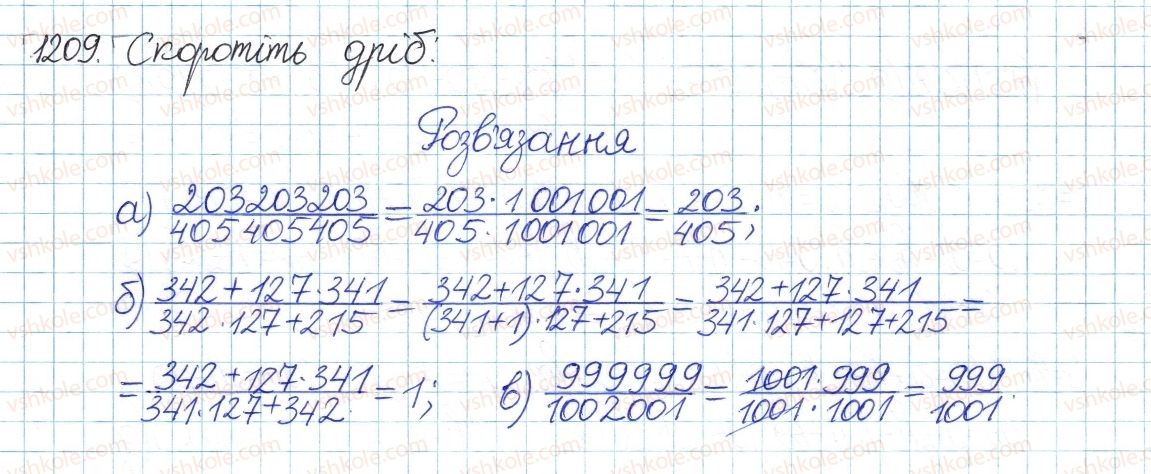 1209. Скоротіть дріб:
Розв'язання
а) 203203203/405405405 = 203·1001001/405·1001001 = 203/405;
б) 342+127·341/342·127+215 = 342+127·341/(341+1)·127+215 = 342+127·341/341·127+127+215 =
= 342+127·341/341·127+342 = 1; в) 999999/1002001 = 1001·999/1001·1001 = 999/1001.